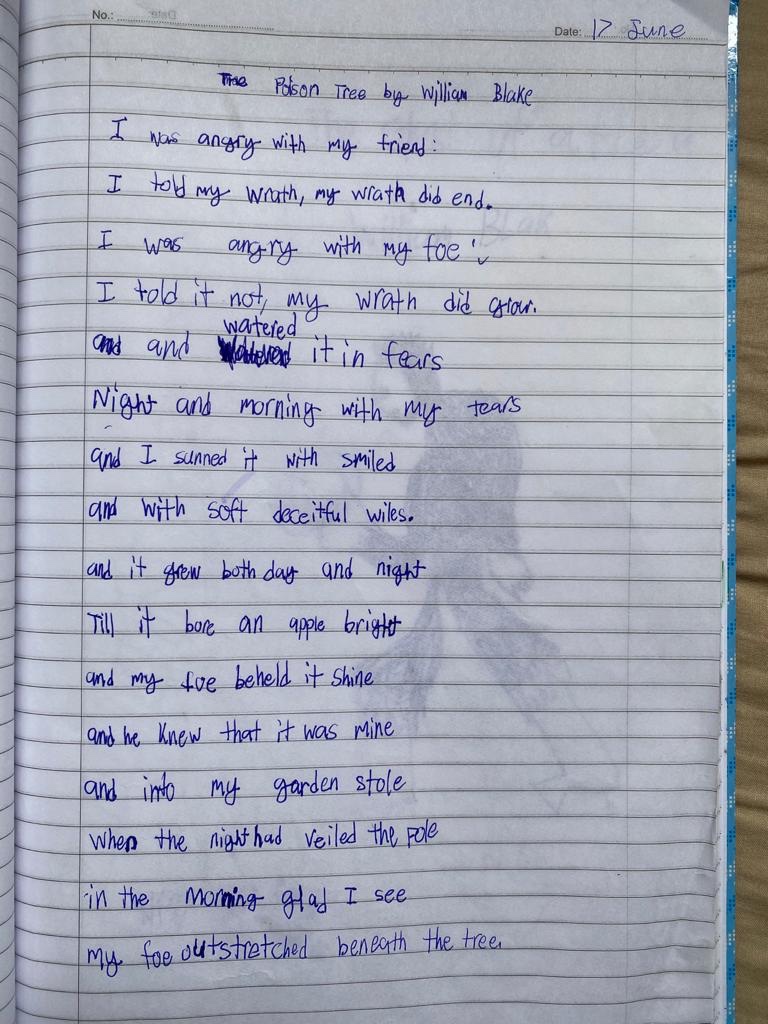 No.:
Date: 17 June
The Poison Tree by William Blake
I was angry with my friend:
I told my wrath, my wrath did end.
I was angry with my foe:
I told it not, my wrath did grow.
and and watered it in fears
Night and morning with my tears
and I sunned it with smiled
and with soft deceitful wiles.
and it grew both day and night
Till it bore an apple bright
and my foe beheld it shine
and he knew that it was mine
and into my garden stole
when the night had veiled the pole
in the morning glad I see
my foe outstretched beneath the tree.